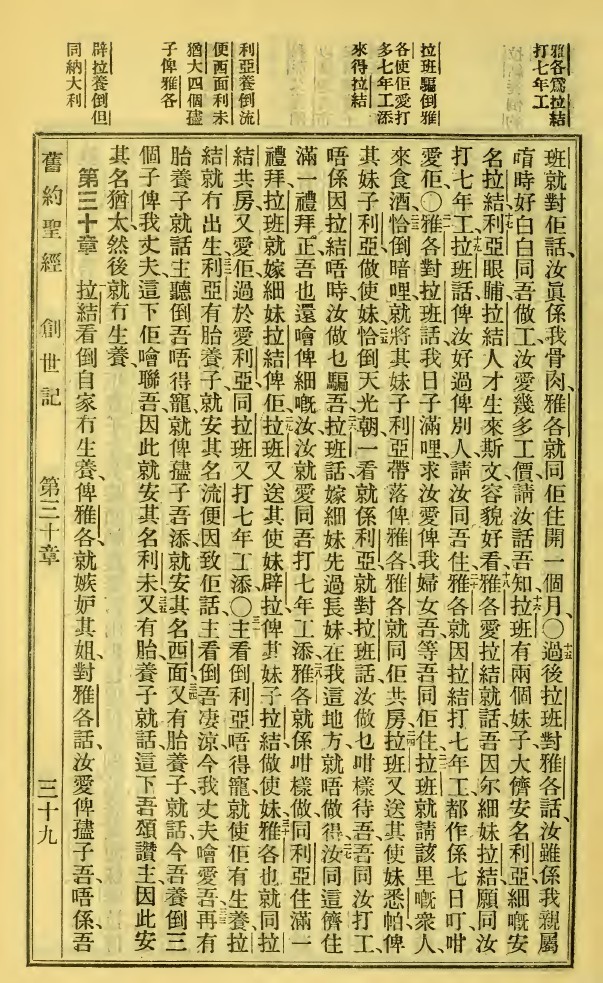 雅各爲拉結
打七年工
拉班騙倒雅
各使佢愛打
多七年工添
來得拉結
利亞養倒流
便西面利未
猶大四個孻
子俾雅各
辟拉養倒但
同納大利
班就對佢話、汝眞係我骨肉、雅各就同佢住開一個月、〇十五過後拉班對雅各話、汝雖係我親屬
唷時好白白同吾做工、汝愛幾多工價、請汝話吾知、十六拉班有兩個妹子、大儕安名利亞、細嘅安
名拉結、十七利亞眼睛拉結人才生來斯文容貌好看、十八雅各愛拉結就話、吾因尔細妹拉結願同汝
打七年工、十九拉班話俾汝好過俾別人、請汝同吾住、二十雅各就因拉結打七年工、都作係七日叮咁
愛佢、〇二一雅各對拉班話、我日子滿哩、求汝愛俾我婦女、吾等吾同佢住、二二拉班就請該里嘅衆人
來食酒、二三恰倒暗哩、就將其妹子利亞帶落俾雅各、雅各就同佢共房、二四拉班又送其使妹悉帕俾
其妹子利亞做使妹、二五恰倒天光朝一看就係利亞、就對拉班話、汝做乜咁樣待吾、吾同汝打工、
唔係因拉結唔時汝做乜騙吾、二六拉班話、嫁細妹先過長妹、在我這地方就唔做得、二七汝同這儕住
滿一禮拜正、吾也還噲俾細嘅汝、汝就愛同吾打七年工添、二八雅各就係咁樣做、同利亞住滿一
禮拜、拉班就嫁細妹拉結俾佢、二九拉班又送其使妹辟拉俾其妹子拉結做使妹、三十雅各也就同拉
結共房、又愛佢過於愛利亞、同拉班又打七年工添、〇三一主看倒利亞唔得寵、就使佢有生養、拉
結就冇出生、三二利亞有胎養子、就安其名流便、因致佢話、主看倒吾淒涼、今我丈夫噲愛吾、三三再有
胎養子、就話、主聽倒吾唔得寵、就俾孻子吾添、就安其名西面、三四又有胎養子、就話、今吾養倒三
個子俾我丈夫、這下佢噲聯吾、因此就安其名利未、三五又有胎養子、就話、這下吾頌讚主、因此安
其名猶太、然後就冇生養、
第三十章 一拉結看倒自家冇生養俾雅各、就嫉妒其姐、對雅各話、汝愛俾孻子吾、唔係吾
舊約聖經 創世記 第三十章 三十九